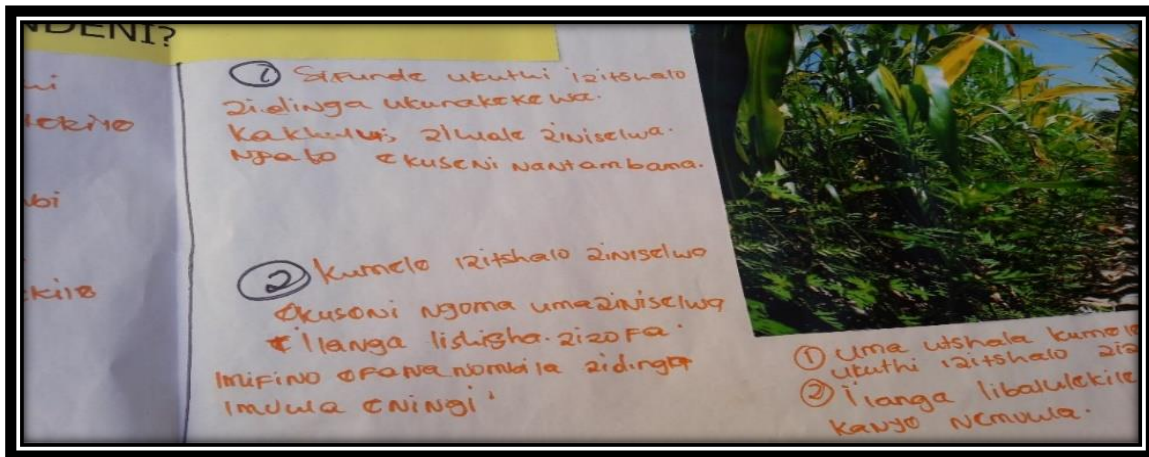 NDENI?
lekiyo
kile
① Sifunde ukuthi izitshalo
zidinga ukunakekewa.
Kakhulu, ziwale ziniselwa.
Ngabo ekuseni nantambama.
② Kumele izitshalo ziniselwe
ekuseni ngoma umaziniselwa
ilanga lishisha. zizofa.
Imifino efana nombila zidinga
imvula eningi
① uma utshala kumele
ukuthi izitshalo
② ilanga libalulekile
kanye nemvula.